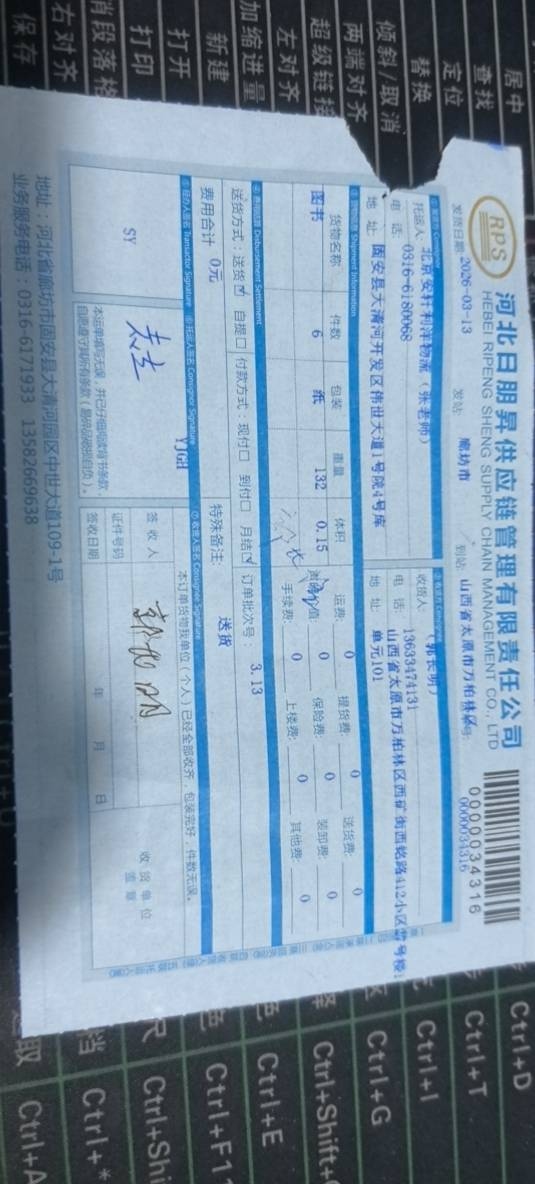 RPS
河北日朋昇供应链管理有限责任公司
HEBEI RIPENG SHENG SUPPLY CHAIN MANAGEMENT CO., LTD
0000034316
0000034316
发货日期: 2026-03-13 发站: 廊坊市 到站: 山西省太原市万柏林
托运人: 北京安轩利洋物流 (张老师)
电 话: 0316-6180068
地 址: 固安县大清河开发区伟世大道1号院4号库
收货人: (郭长明)
电 话: 13633474131
地 址: 山西省太原市万柏林区西矿街西铭路412小区
单元101
货物信息 Shipment Information
货物名称 件数 包装 重量 体积
图书 6 纸 132 0.15
运费: 0 提货费: 0 送货费: 0
0 保险费: 0 装卸费: 0
手续费: 0 上楼费: 0 其他费: 0
Disbursement Settlement
送货方式: 送货☑ 自提□ 付款方式: 现付□ 到付□ 月结☑ 订单批次号: 3.13
费用合计 0元 特殊备注: 送货
经办人签名 Transactor Signature
托运人签名 Consignor Signature
收货人签名 Consignee Signature
SY
YJGH
本运单填写无误,并已仔细阅读背书条款,
自愿遵守其所有条款(易碎品破损自负)。
本订单货物我单位(个人)已经全部收齐,包装完好,件数无误。
签 收 人
证件号码
签收日期 年 月 日
收 货 单 位
盖 章
地址:河北省廊坊市固安县大清河园区中世大道109-1号
业务服务电话:0316-6171933 13582669638
居中
查找
定位
替换
倾斜/取消
两端对齐
超级链接
左对齐
加缩进量
新建
打开
打印
肖段落格
右对齐
保存
Ctrl+D
Ctrl+T
Ctrl+I
Ctrl+G
Ctrl+Shift+
Ctrl+E
Ctrl+F1
Ctrl+Shi
Ctrl+*
Ctrl+A